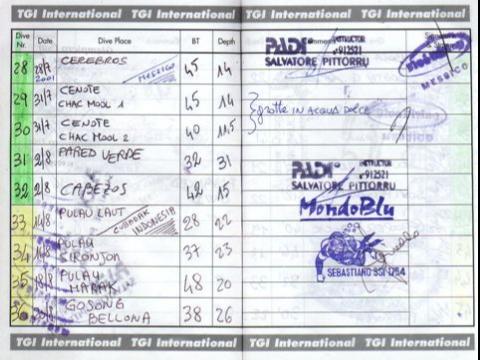 TGI International TGI International TGI International TGI International
Dive Nr. Date Dive Place BT Depth
28 28/7 2001 CEREBROS MESSICO 45 14
29 31/7 CENOTE CHAC MOOL 1 45 14
30 31/7 CENOTE CHAC MOOL 2 40 11,5
31 2/8 PARED VERDE 32 31
32 2/8 CABEZOS 42 15
33 14/8 PULAU LAUT INDONESIA 28 22
34 PULAU SIRONJON 37 23
35 18/8 PULAU MARAK 48 20
36 GOSONG BELLONA 38 26
PADI INSTRUCTOR
912521
SALVATORE PITTORRU
MESSICO
grotte IN ACQUA DOLCE
PADI INSTRUCTOR
912521
SALVATORE PITTORRU
MondoBlu
SEBASTIANO SSI 1254
TGI International TGI International TGI International TGI International